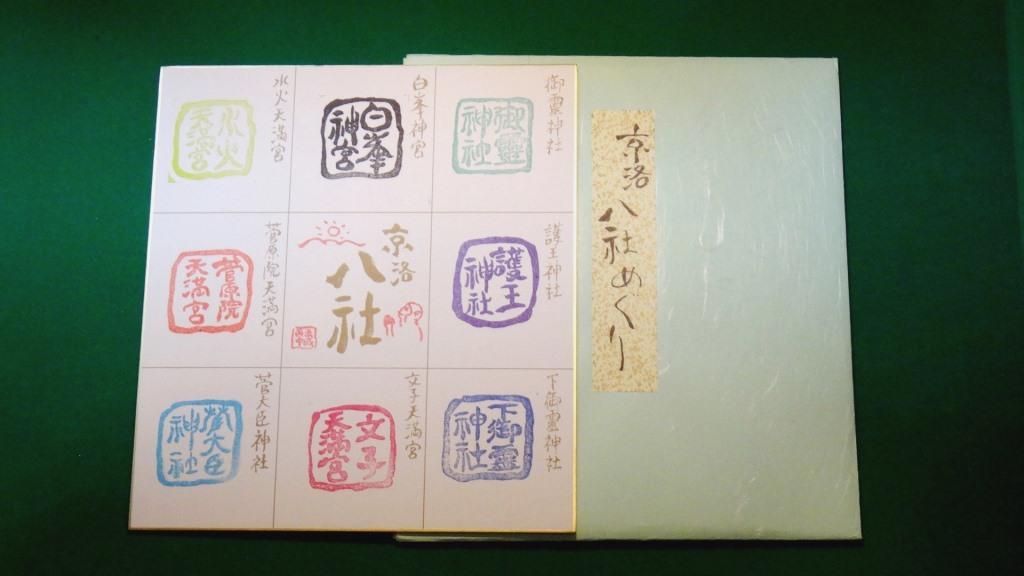 京洛八社めぐり
御霊神社
御靈
神社
白峯神宮
白峯
神宮
水火天満宮
水火
天満宮
護王神社
護王
神社
京洛
八社
菅原院天満宮
菅原院
天満宮
下御霊神社
下御靈
神社
文子天満宮
文子
天満宮
菅大臣神社
菅大臣
神社